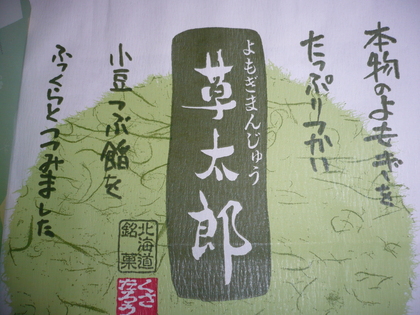 本物のよもぎを
たっぷりつかい
よもぎまんじゅう
草太郎
小豆つぶ餡を
ふっくらとつつみました
北海道
銘菓
くさ
たろう